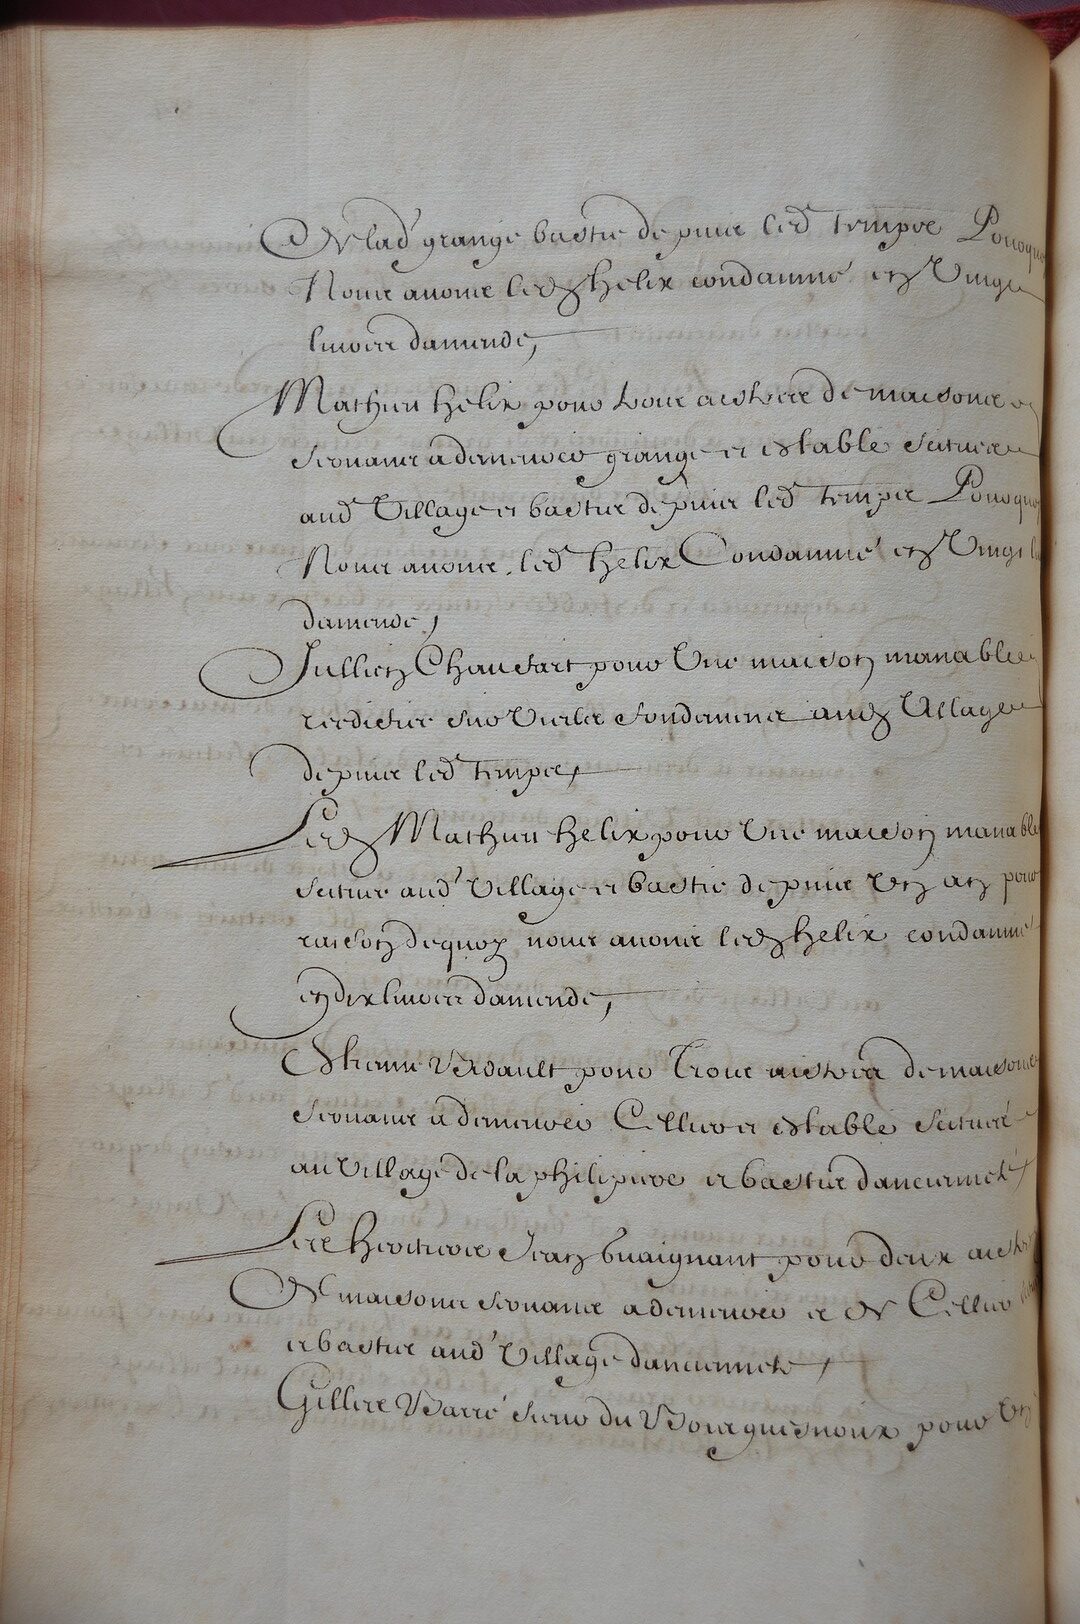 Et lad' grange bastie depuis led temps Pourquoy
Nous auons led helix condamné en Vingt
liures damende,
Mathieu helix pour trois aistres de maisons et
seruans a demeurer grange et estable scitués
aud Village et bastie depuis led temps Pourquoy
Nous auons led helix Condamné en Vingt
damende,
Jullien Chaussart pour Vne maison manable
reediffiée sur Vielles fondemens aud Village
depuis led temps,
Led Mathieu helix pour Vne maison manable
scituée aud' Village et bastie depuis Vn an pour
raison dequoy nous auons led helix condamné
en dix liures damende,
Estienne Verdault pour Trois aistres de maisons
seruans a demeurer Cellier et estable scitués
au Village de la philipiere et bastie dancienneté,
Les heritiers Jean buaignant pour deux aistres
de maisons seruans a demeurer et de Cellier
et bastie aud' Village dancienneté,
Gilles Barré sieur du pour Vn